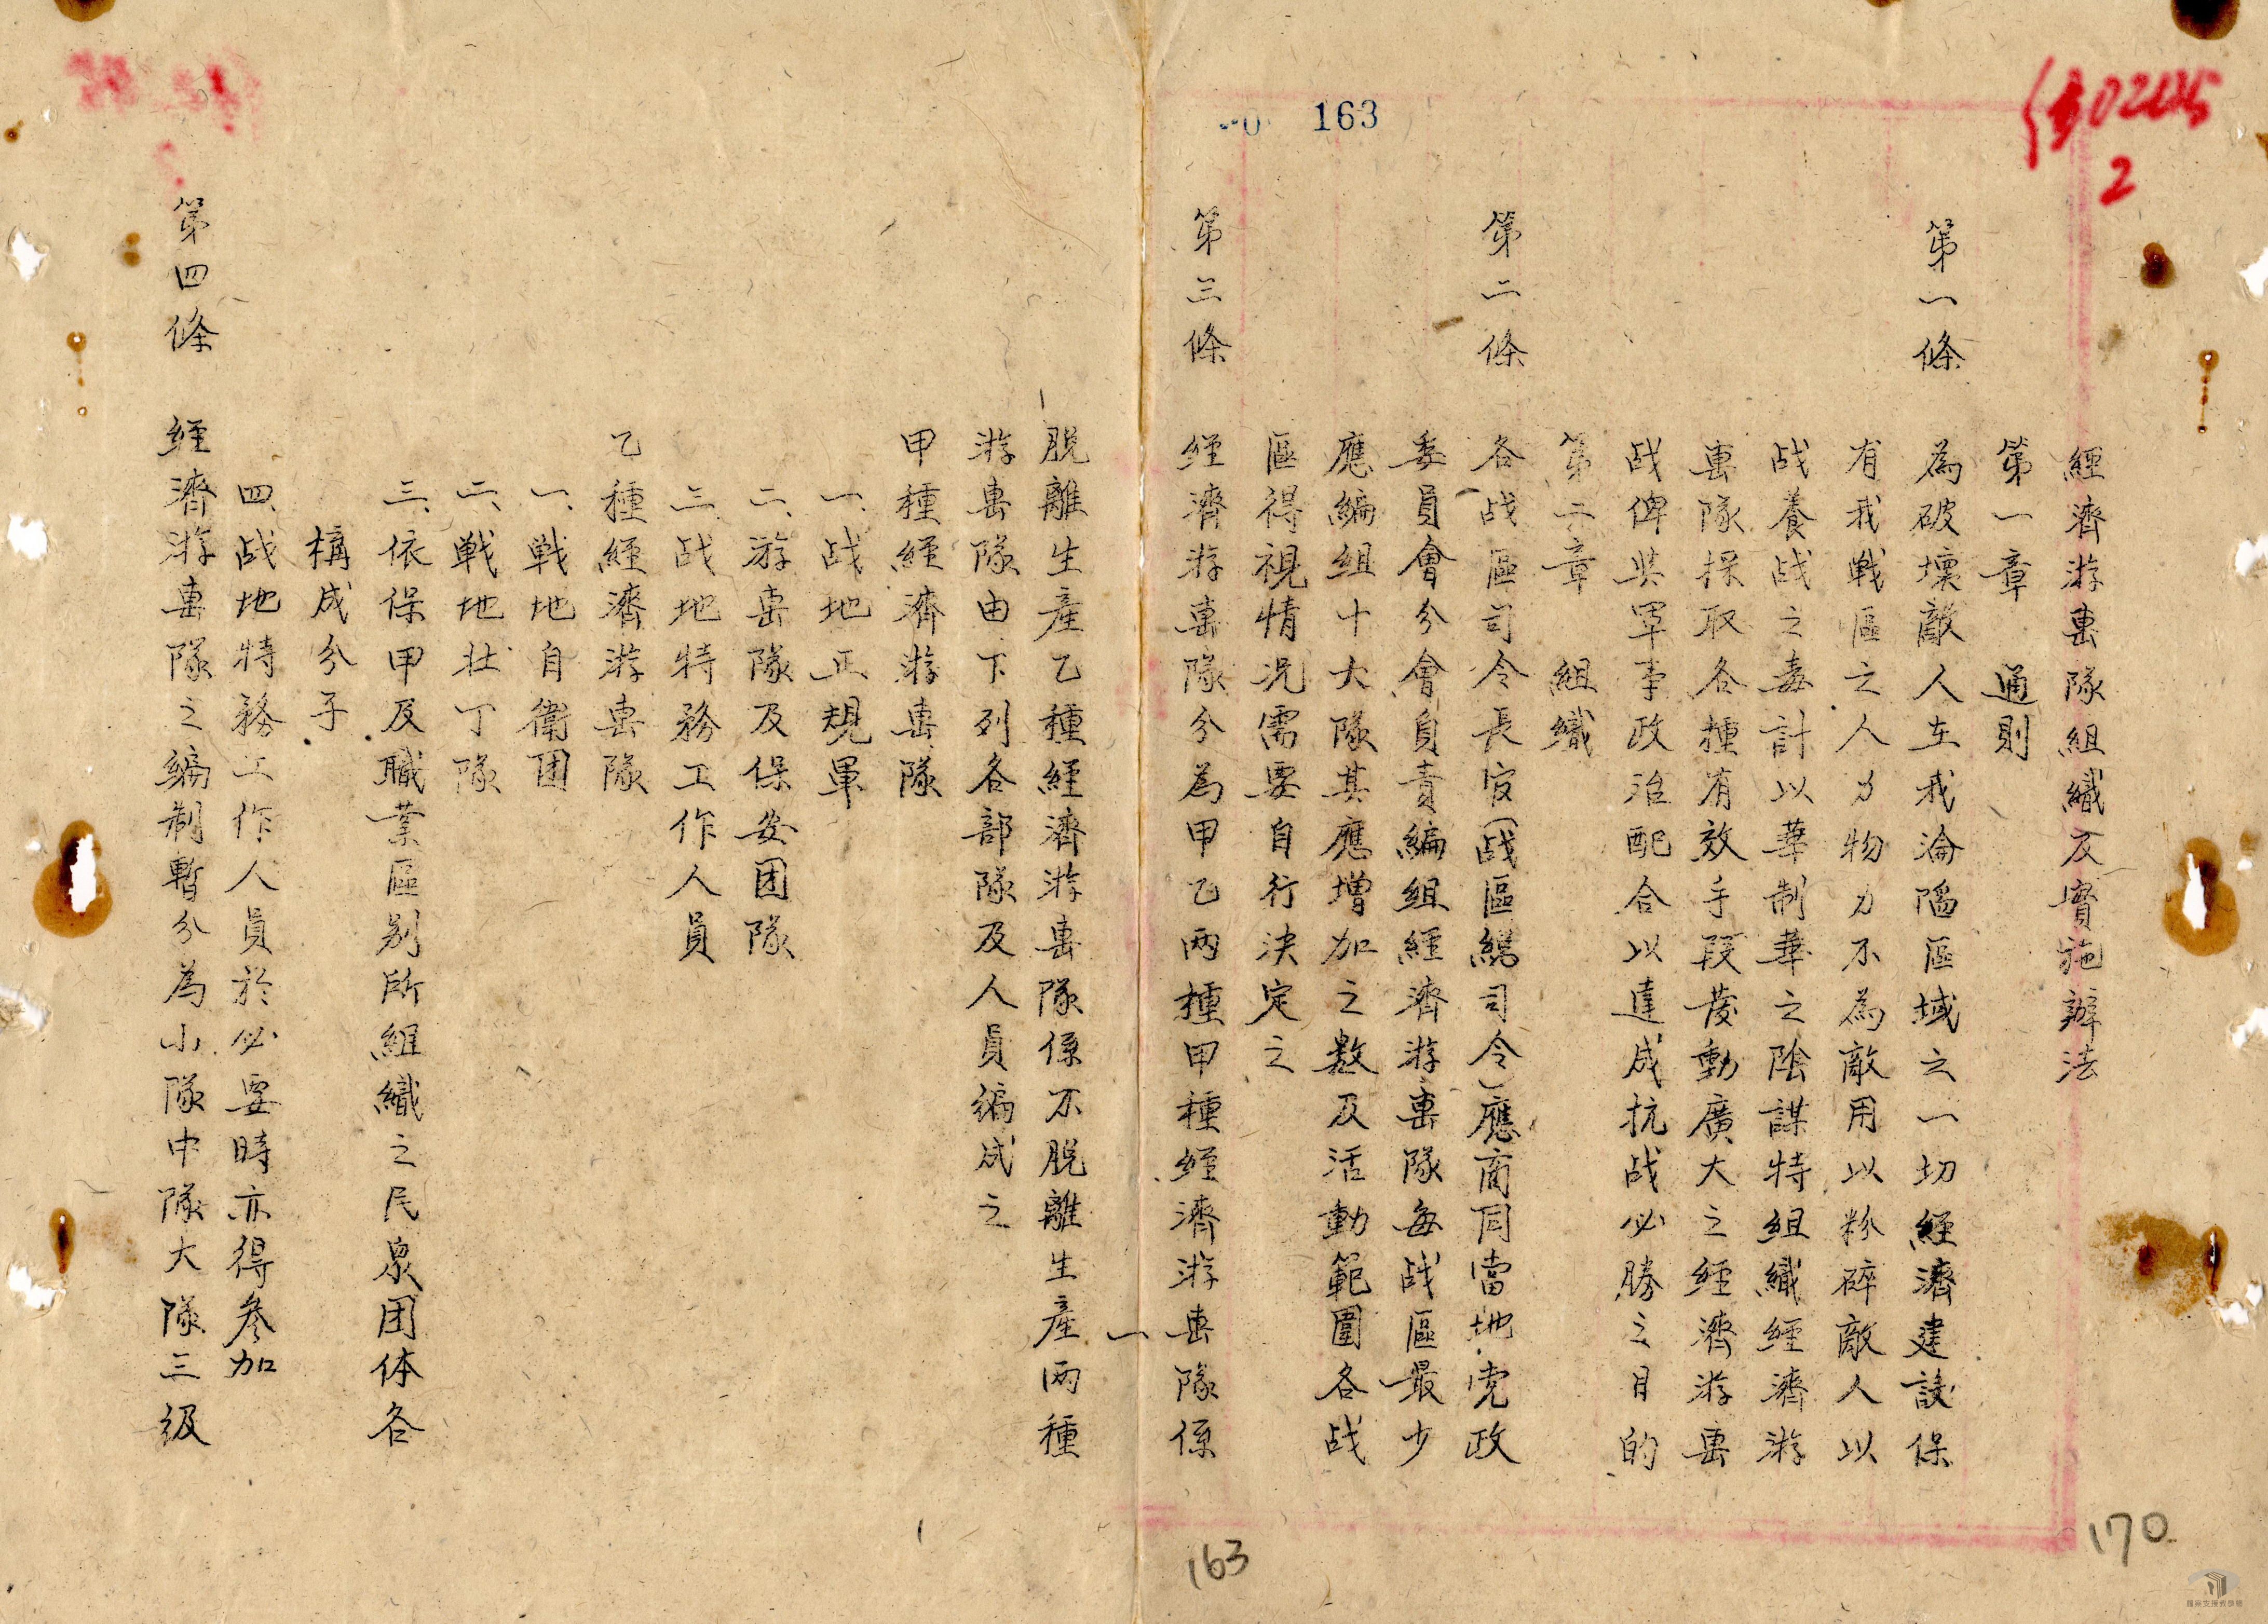 163
2
經濟游擊隊組織及實施辦法
第一章 通則
第一條 為破壞敵人在我淪陷區域之一切經濟建設保
有我戰區之人力物力不為敵用以粉碎敵人以
战養战之毒計以華制華之陰謀特組織經濟游
擊隊採取各種有效手段發動廣大之經濟游擊
战俾與軍事政治配合以達成抗战必勝之目的
第二章 組織
第二條 各战區司令長官(战區總司令)應商同當地党政
委員會分會負責編組經濟游擊隊每战區最少
應編組十大隊其應增加之數及活動範圍各战
區得視情況需要自行決定之
第三條 經濟游擊隊分為甲乙两種甲種經濟游擊隊係
一
脫離生產乙種經濟游擊隊係不脫離生產两種
游擊隊由下列各部隊及人員編成之
甲種經濟游擊隊
一、战地正規軍
二、游擊隊及保安团隊
三、战地特務工作人員
乙種經濟游擊隊
一、戰地自衛团
二、戰地壯丁隊
三、依保甲及職業區别所組織之民众团体各
構成分子
四、战地特務工作人員於必要時亦得參加
第四條 經濟游擊隊之編制暫分為小隊中隊大隊三級
163
170